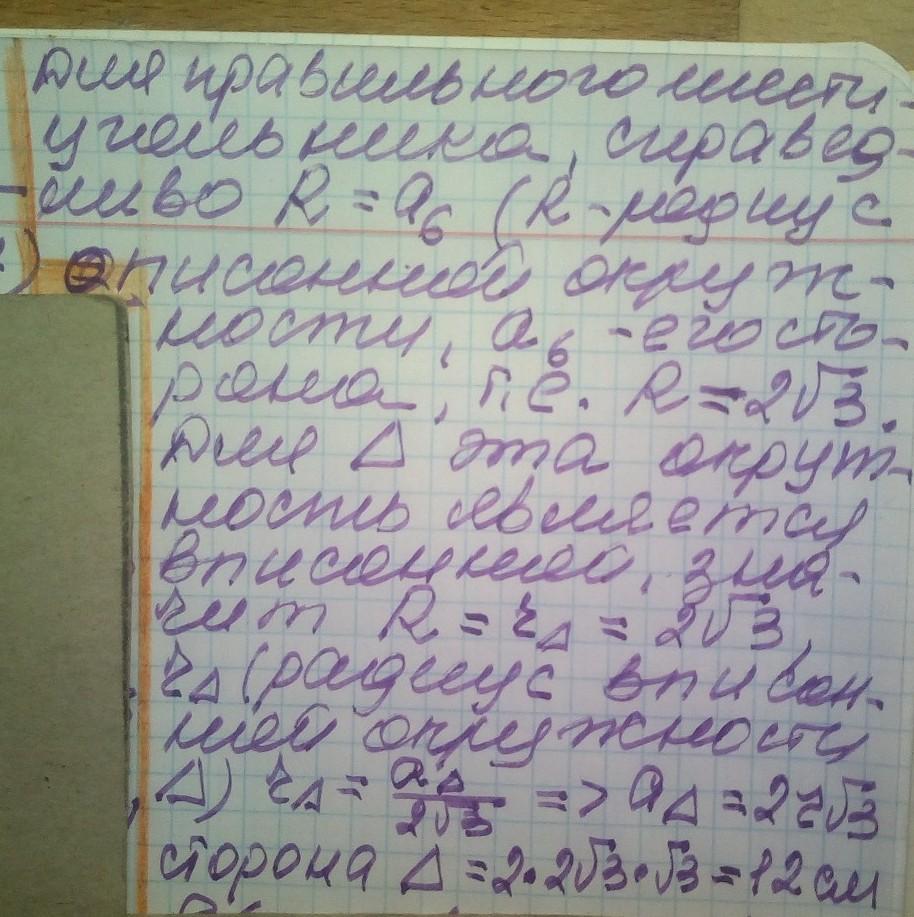 Для правильного шести-
угольника, справед-
ливо R = a₆ (R - радиус
описанной окруж-
ности, a₆ - его сто-
рона, т.е. R = 2√3.
Для Δ эта окруж-
ность является
вписанной, зна-
чит R = r_Δ = 2√3,
r_Δ (радиус вписан-
ной окружности
Δ) r_Δ = a_Δ/2√3 => a_Δ = 2r√3
сторона Δ = 2·2√3·√3 = 12 см